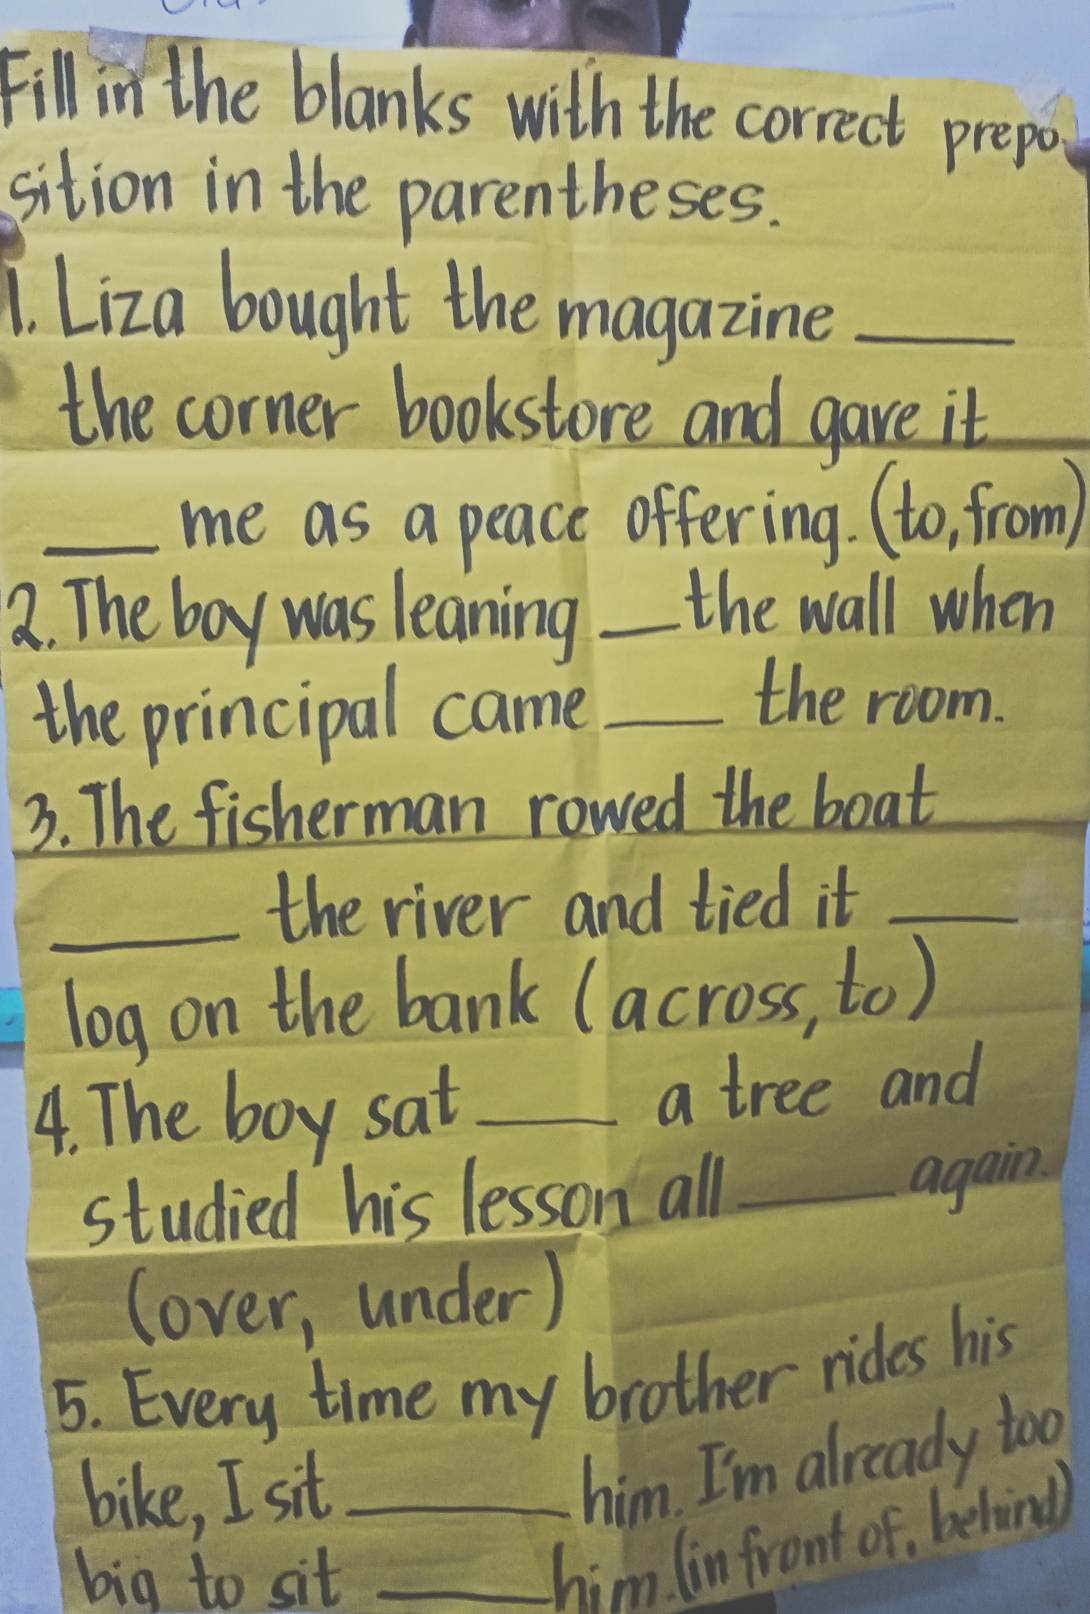 Fill in the blanks with the correct prepo-
sition in the parentheses.
1. Liza bought the magazine _____
the corner bookstore and gave it
____ me as a peace offering. (to, from)
2. The boy was leaning ___ the wall when
the principal came ____ the room.
3. The fisherman rowed the boat
______ the river and tied it ____
log on the bank (across, to)
4. The boy sat ____ a tree and
studied his lesson all _____ again.
(over, under)
5. Every time my brother rides his
bike, I sit _______ him. I'm already too
big to sit _____ him. (in front of, behind)